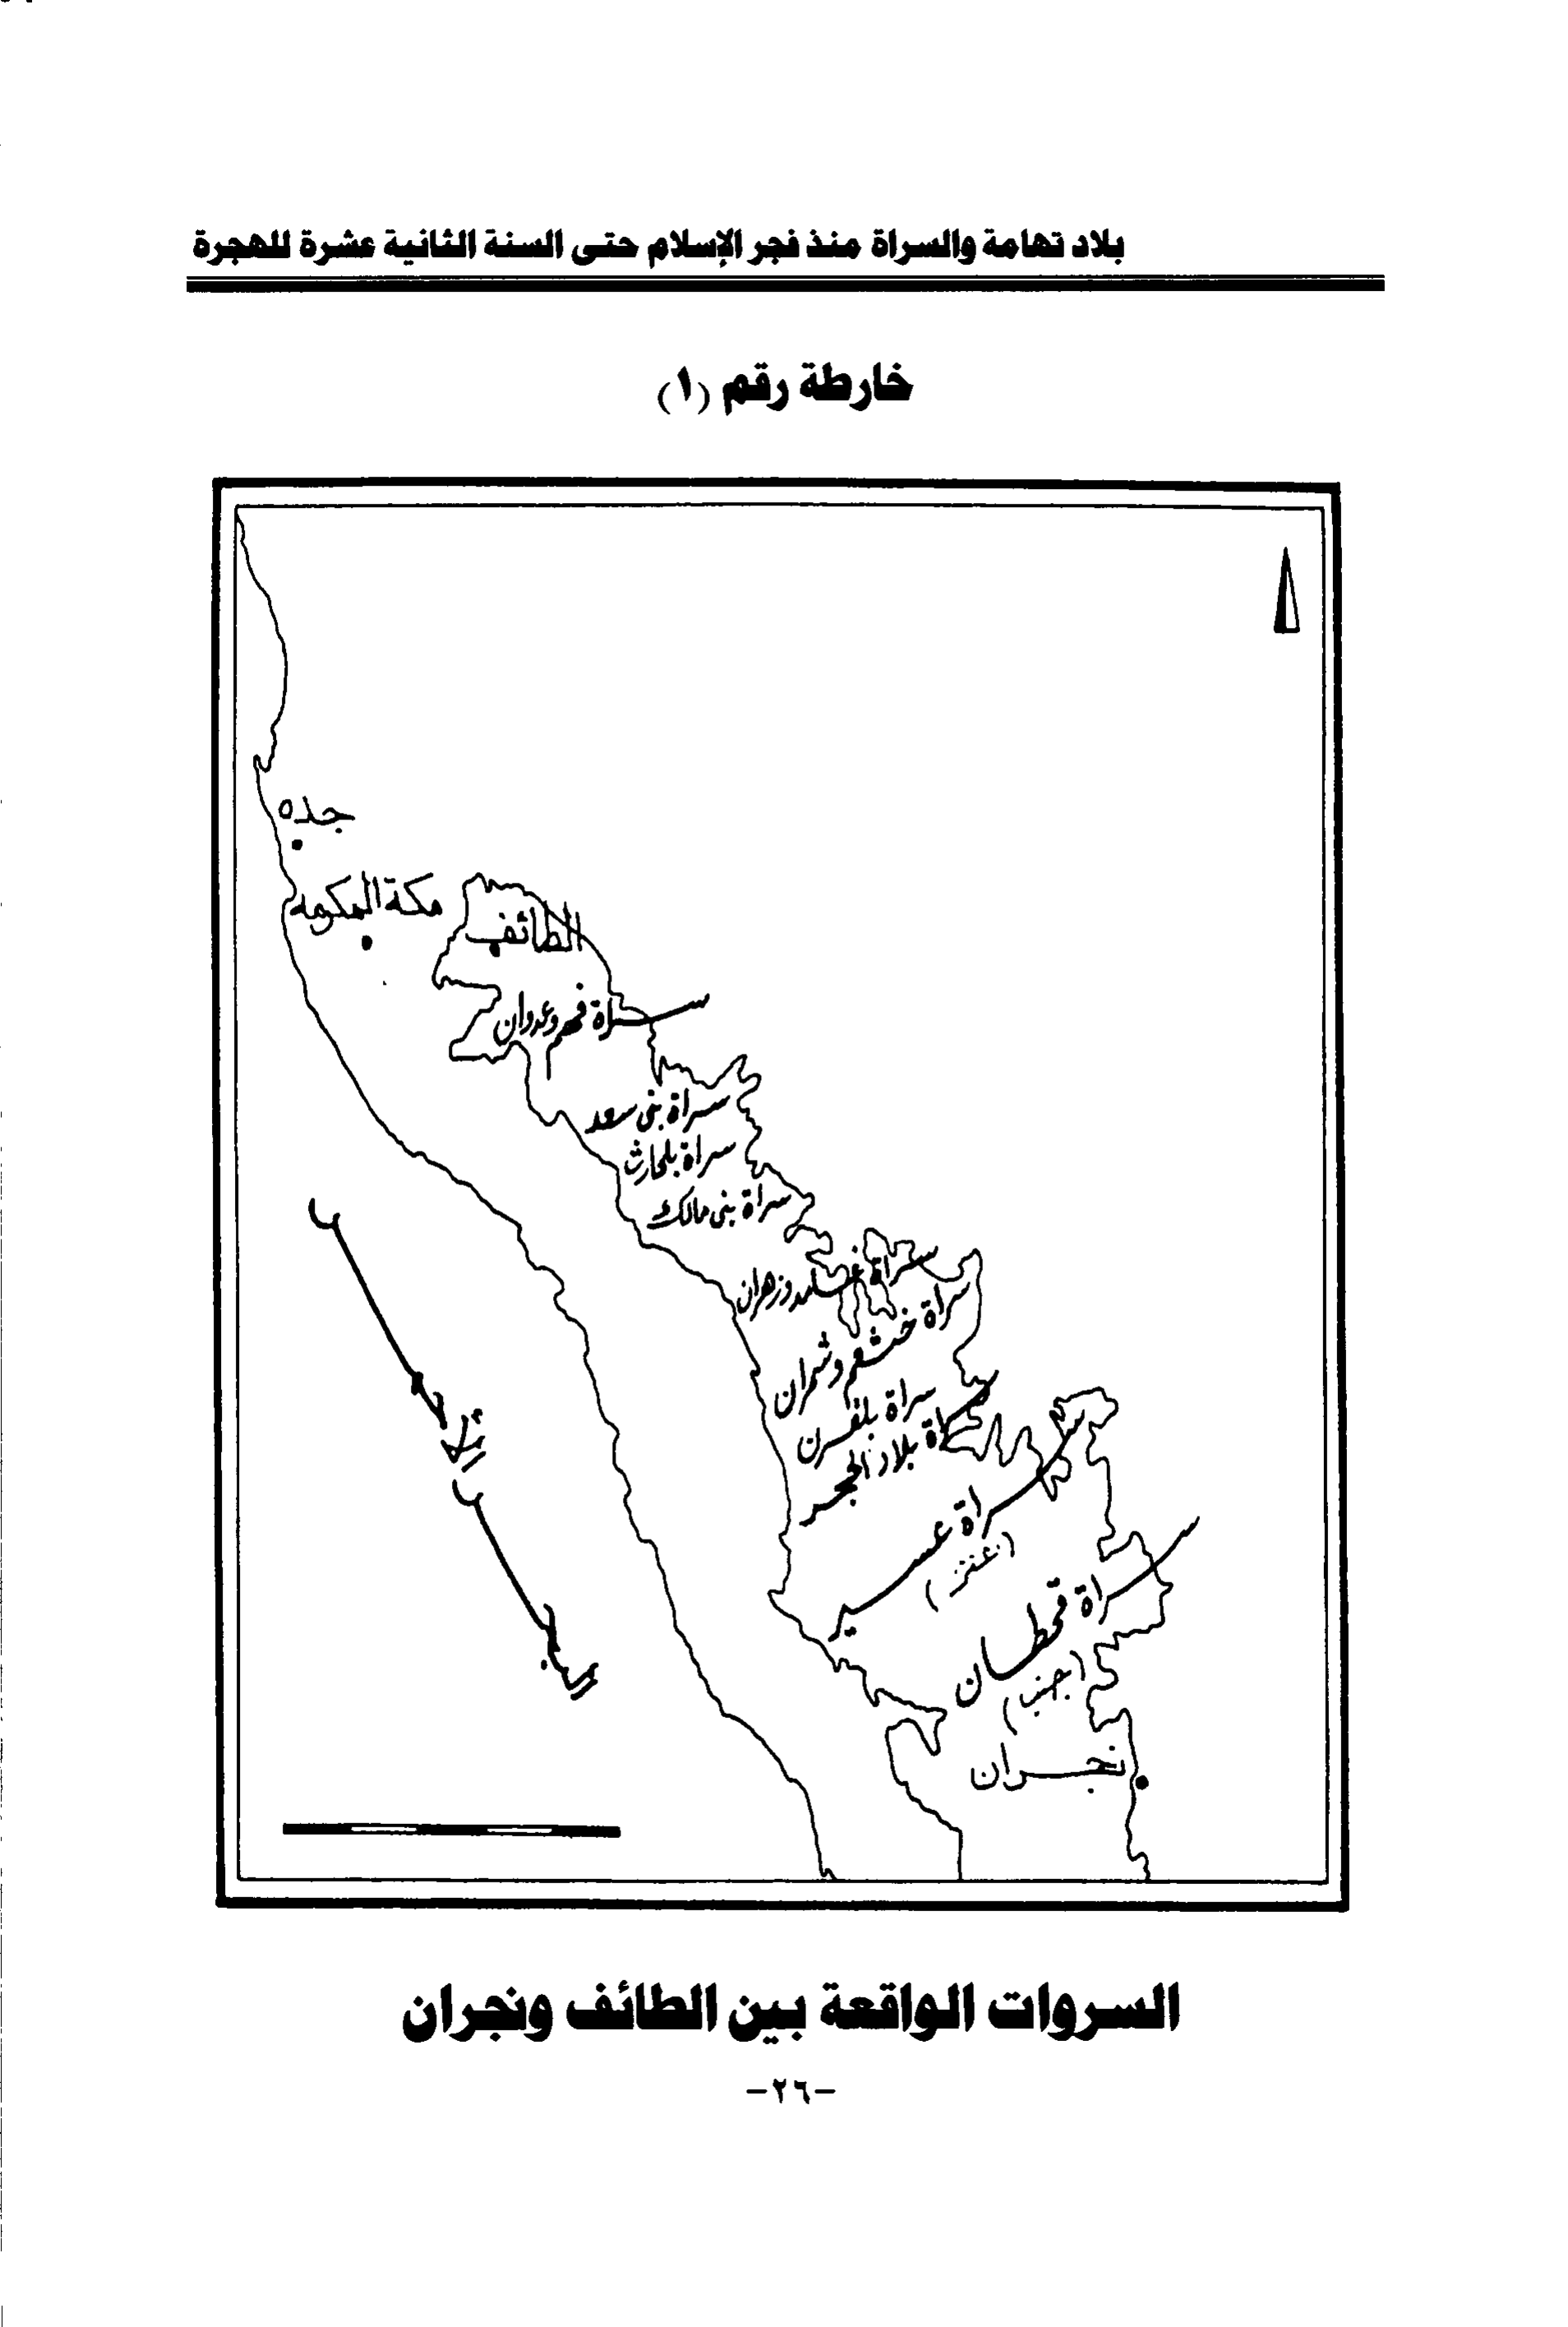 بلاد تهامة والسراة منذ فجر الإسلام حتى السنة الثانية عشرة للهجرة
خارطة رقم (١)
جده
مكة المكرمه
الطائف
سراة فهم وعدوان
سراة بني سعد
سراة بلحارث
سراة بني مالك
سراة غامد وزهران
سراة خثعم وشمران
سراة بلقرن
سراة بلاد الحجر
سراة عسير
(عنز)
سراة قحطان
(جنب)
نجران
البحر
السروات الواقعة بين الطائف ونجران
-٢٦-